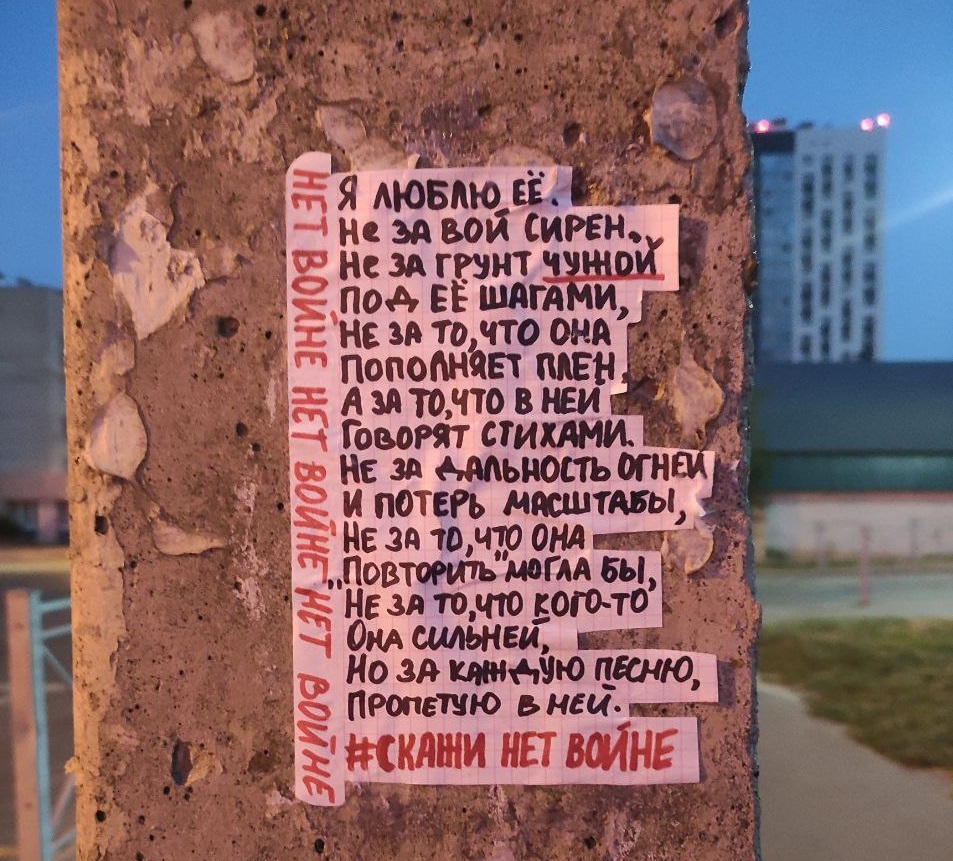 НЕТ ВОЙНЕ НЕТ ВОЙНЕ НЕТ ВОЙНЕ
Я ЛЮБЛЮ ЕЁ.
НЕ ЗА ВОЙ СИРЕН,
НЕ ЗА ГРУНТ ЧУЖОЙ
ПОД ЕЁ ШАГАМИ,
НЕ ЗА ТО, ЧТО ОНА
ПОПОЛНЯЕТ ПЛЕН,
А ЗА ТО, ЧТО В НЕЙ
ГОВОРЯТ СТИХАМИ.
НЕ ЗА ДАЛЬНОСТЬ ОГНЕЙ
И ПОТЕРЬ МАСШТАБЫ,
НЕ ЗА ТО, ЧТО ОНА
„ПОВТОРИТЬ" МОГЛА БЫ,
НЕ ЗА ТО, ЧТО КОГО-ТО
ОНА СИЛЬНЕЙ,
НО ЗА КАЖДУЮ ПЕСНЮ,
ПРОПЕТУЮ В НЕЙ.
#СКАЖИ НЕТ ВОЙНЕ